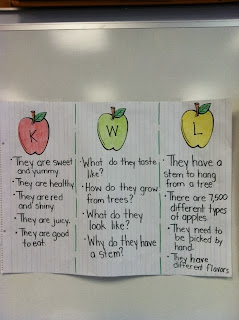 K
• They are sweet
and yummy.
• They are healthy
• They are red
and shiny.
• They are juicy.
• They are good
to eat.
W
• What do they taste
like?
• How do they grow
from trees?
• What do they
look like?
• Why do they have
a stem?
L
• They have a
stem to hang
from a tree
• There are 7,500
different types
of apples.
• They need to
be picked by
hand.
• They have
different flavors